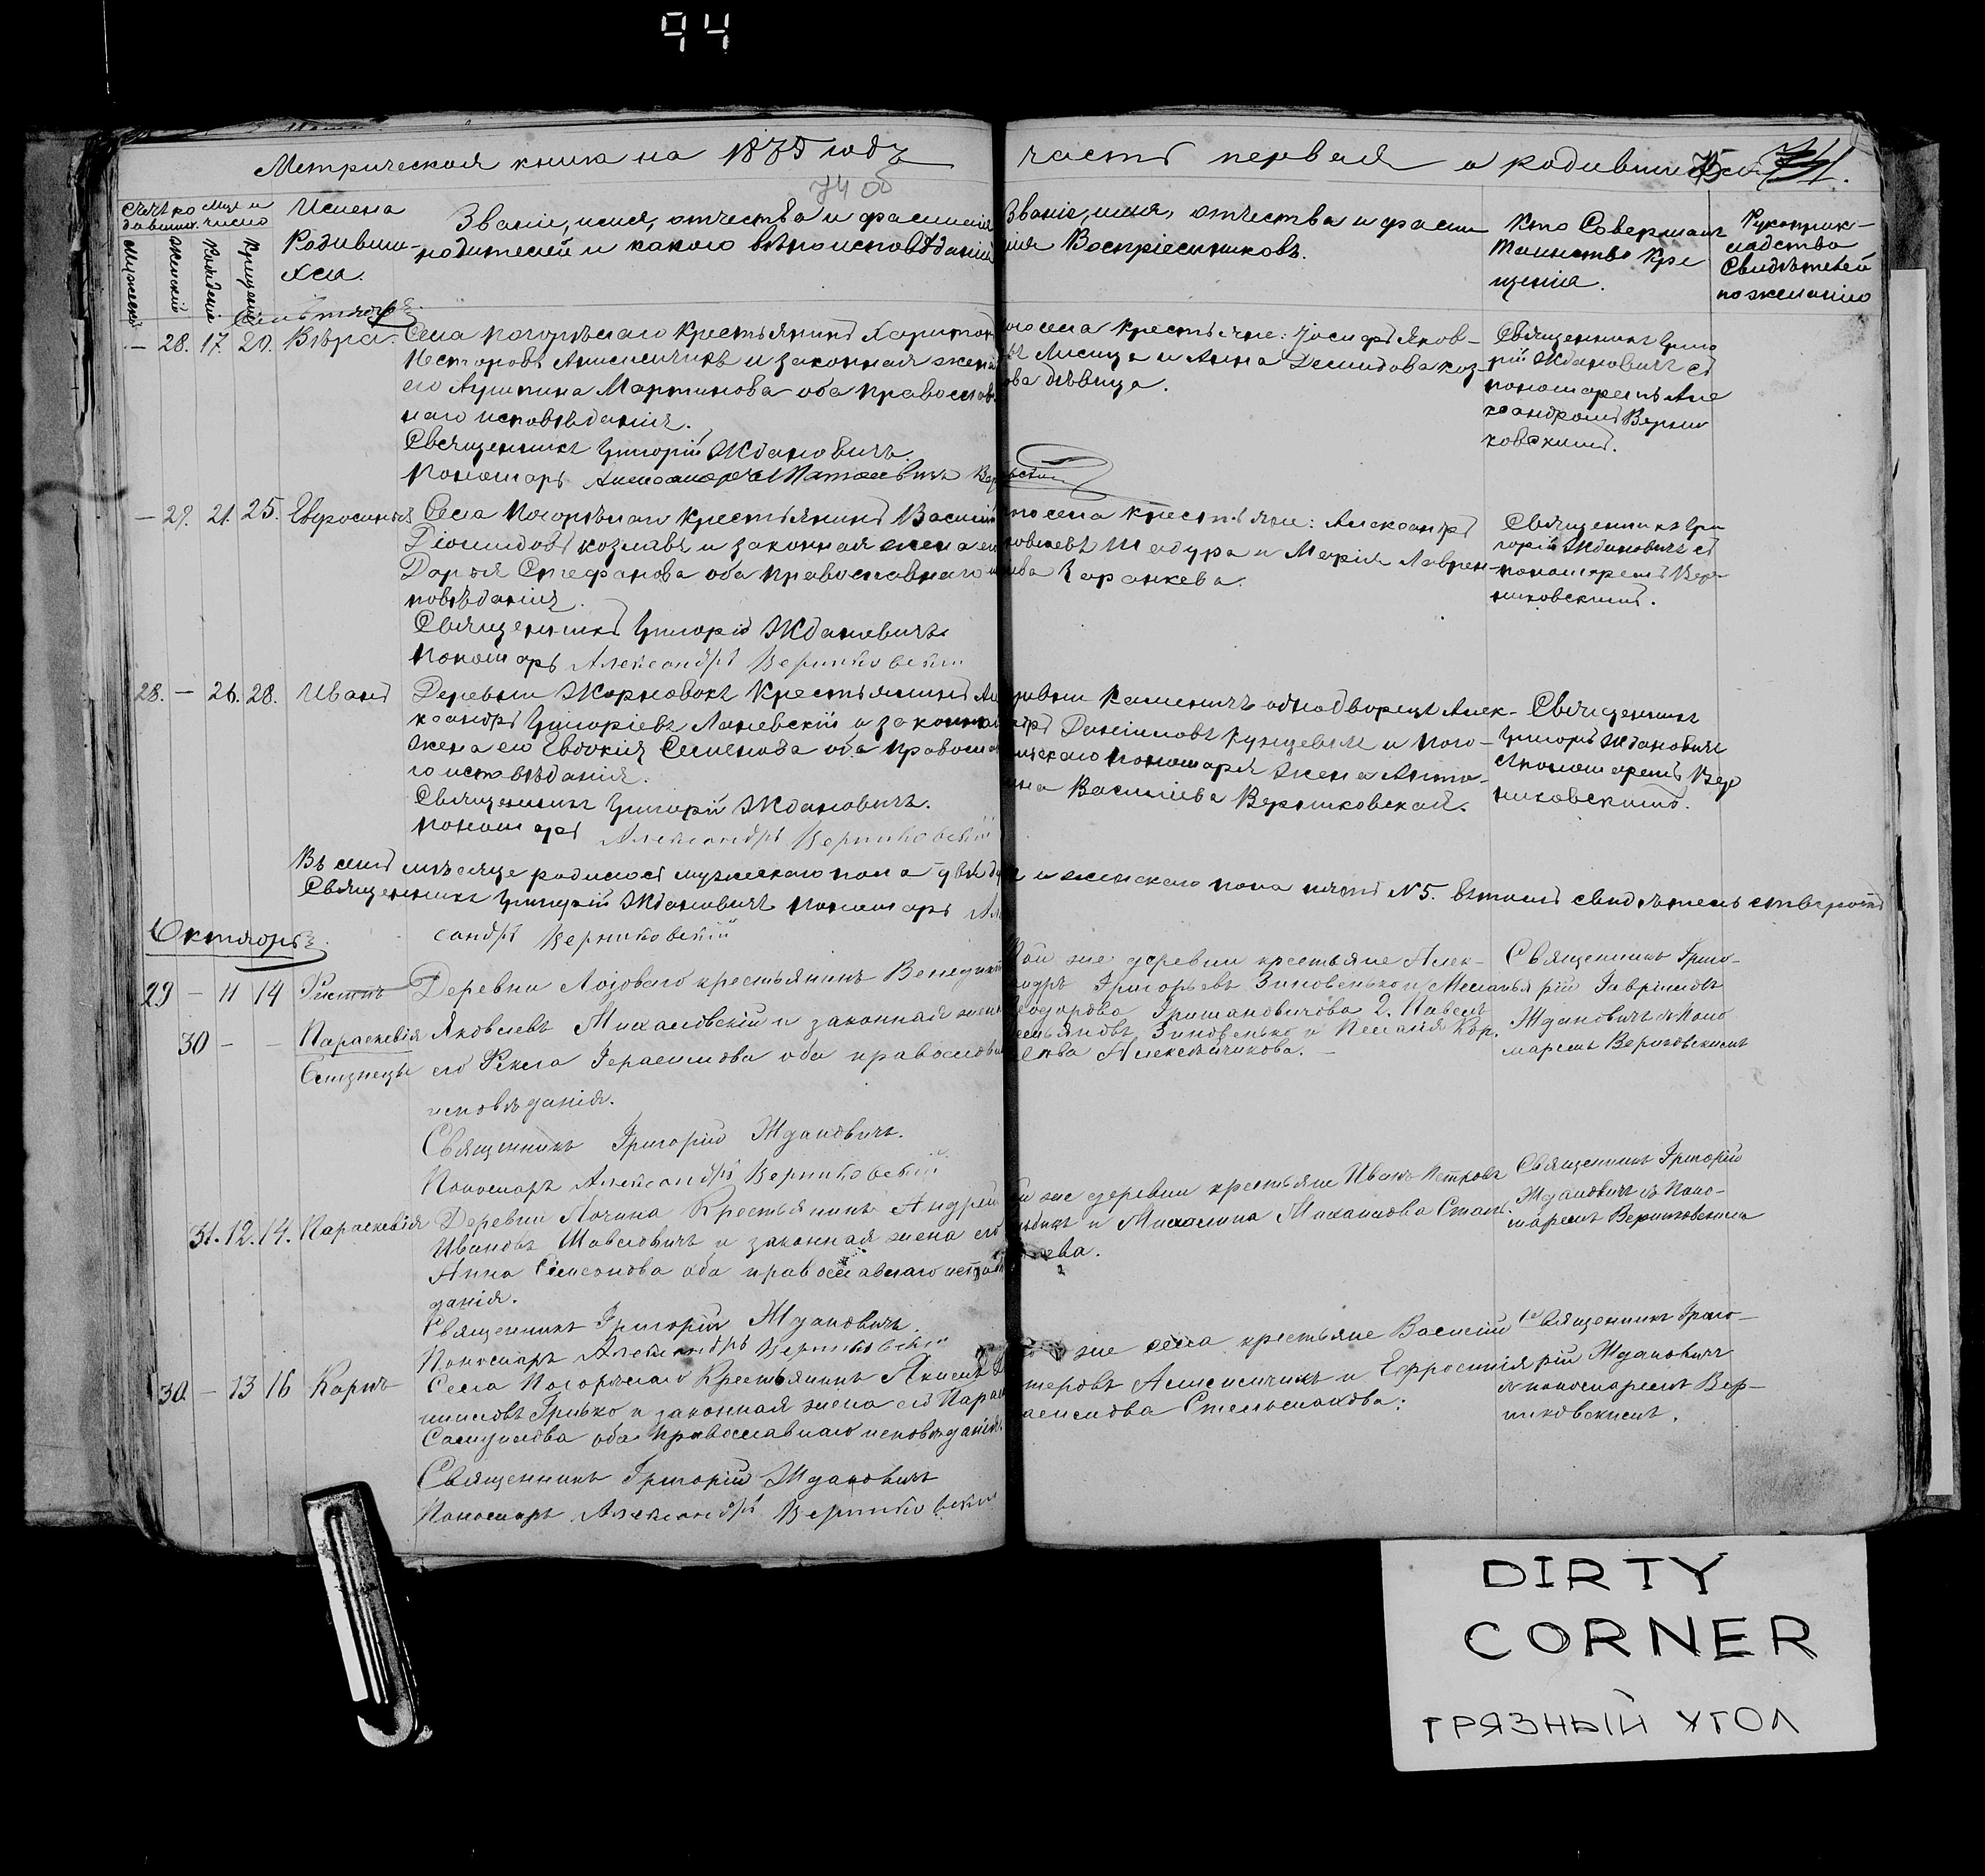 94
Метрическая книга на 1875 годъ
часть первая о родившихся
75
74.
74 об
Счетъ ро
дивших.
Мужескій
Женскій
Мцъ и
число
Рожденія
Крещенія
Имена
Родивши-
хся.
Званіе, имя, отчества и фамиліи
родителей и какого вѣроисповѣданія
Званіе, имя, отчества и фами
лія Воспріемниковъ.
Кто Совершалъ
Таинство Кре
щенія.
Рукоприк-
ладство
Свидѣтелей
по желанію
Сентябрь
— 28. 17. 20. Вѣра. Села Погорѣлаго Крестьянинъ Харитонъ
Несторовъ Анисимчикъ и законная жена
его Агрипина Мартинова оба православ
наго исповѣданія.
Священникъ Григорій Ждановичъ.
Пономарь
ого села Крестьяне: Іосифъ Яков-
Лисица и Анна Демидова Коз-
ова дѣвица.
Священникъ Григо
рій Ждановичъ съ
пономаремъ Але
ксандромъ Верни
ковскимъ.
— 29. 21. 25. Евфросинья Села Погорѣлаго Крестьянинъ Василій
Діомидовъ Козловъ и законная жена его
Дарья Стефанова оба православнаго ис
повѣданія.
Священникъ Григорій Ждановичъ
Пономарь Александръ Верниковскій
села крестьяне: Александръ
ковлевъ Шадура и Марія Лаврен-
Царанкева.
Священникъ Гри
горій Ждановичъ съ
пономаремъ Вер-
никовскимъ.
28. — 26. 28. Иванъ Деревни Жорновокъ Крестьянинъ Але
ксандръ Григоріевъ Лапевскій и законная
жена его Евдокія Семенова оба православ
го исповѣданія.
Священникъ Григорій Ждановичъ.
Пономарь Александръ Верниковскій
ревни Каменичъ однодворецъ Алек-
Даніиловъ Кунцевичъ и Пого-
лоскаго пономаря жена Анто-
на Василіева Верниковская.
Священникъ
Григорій Ждановичъ
съ пономаремъ Вер
никовскимъ.
Въ семъ мѣсяце родилось мужескаго пола два
и женскаго пола пять №5. Въ томъ свидѣтельствуютъ
Священникъ Григорій Ждановичъ Пономарь Алек
сандръ Верниковскій
Октябрь.
29 — 11 14 Деревни Лозоваго крестьянинъ Венедиктъ
30 — — Параскевія Яковлевъ Михаловскій и законная жена
Близнецы его Фекла Герасимова оба православнаго
исповѣданія.
Священникъ Григорій Ждановичъ.
Пономарь Александръ Верниковскій
той же деревни крестьяне Алек-
сандръ Григорьевъ Зиновенько и Меланья
Ѳодорова Гришановичова 2. Павелъ
Зиновенько и Пелагія Кор.
Алексѣйчикова.
Священникъ Григо-
рій Гавріиловъ
Ждановичъ съ Поно
маремъ Верниковскимъ
31. 12. 14. Параскевія Деревни Почина Крестьянинъ Андрей
Ивановъ Шавловичъ и законная жена его
Анна Симеонова оба православнаго исповѣ
данія.
Священникъ Григорій Ждановичъ.
Пономарь Александръ Верниковскій
же деревни крестьяне Иванъ Петровъ
и Михалина Михаилова Стан.
ева.
Священникъ Григорій
Ждановичъ съ Поно-
маремъ Верниковскимъ
30 — 13 16 Карпъ Села Погорѣлаго Крестьянинъ Якимъ
Гринько и законная жена его Парас
Самуилова оба православнаго исповѣданія.
Священникъ Григорій Ждановичъ
Пономарь Александръ Верниковскій
же села крестьяне Василій
Нестеровъ Анисимчикъ и Ефросинія
Стельмахова.
Священникъ Григо-
рій Ждановичъ
съ пономаремъ Вер-
никовскимъ.
DIRTY
CORNER
ГРЯЗНЫЙ УГОЛ